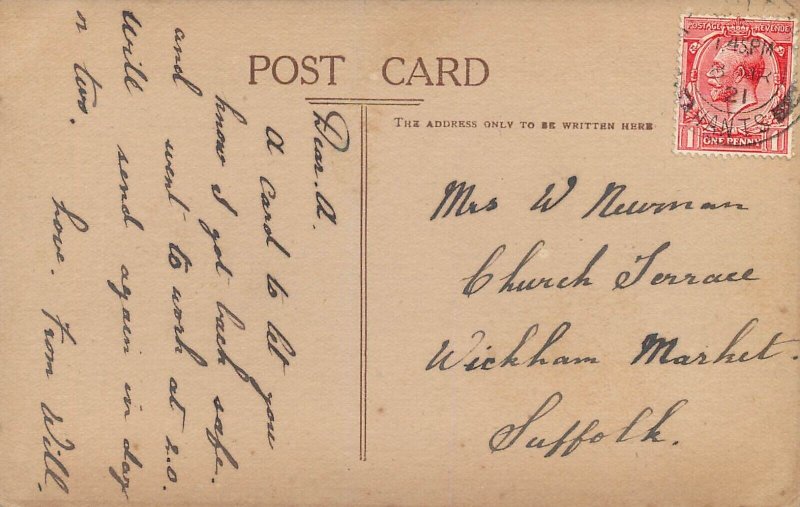 POST CARD
THE ADDRESS ONLY TO BE WRITTEN HERE
Dear A.
A card to let you
know I got back safe.
and went to work at 2.0.
will send again in day
or two.
Love. From Will.
Mrs W Newman
Church Terrace
Wickham Market.
Suffolk.
POSTAGE REVENUE
ONE PENNY
1 1
45 PM
21
HANTS